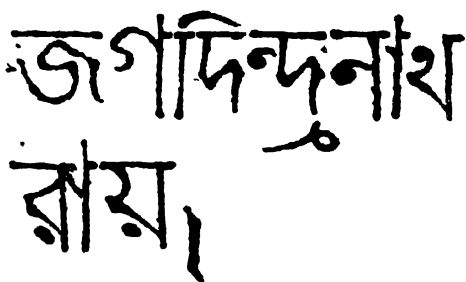 জগদিন্দ্রনাথ
রায়,